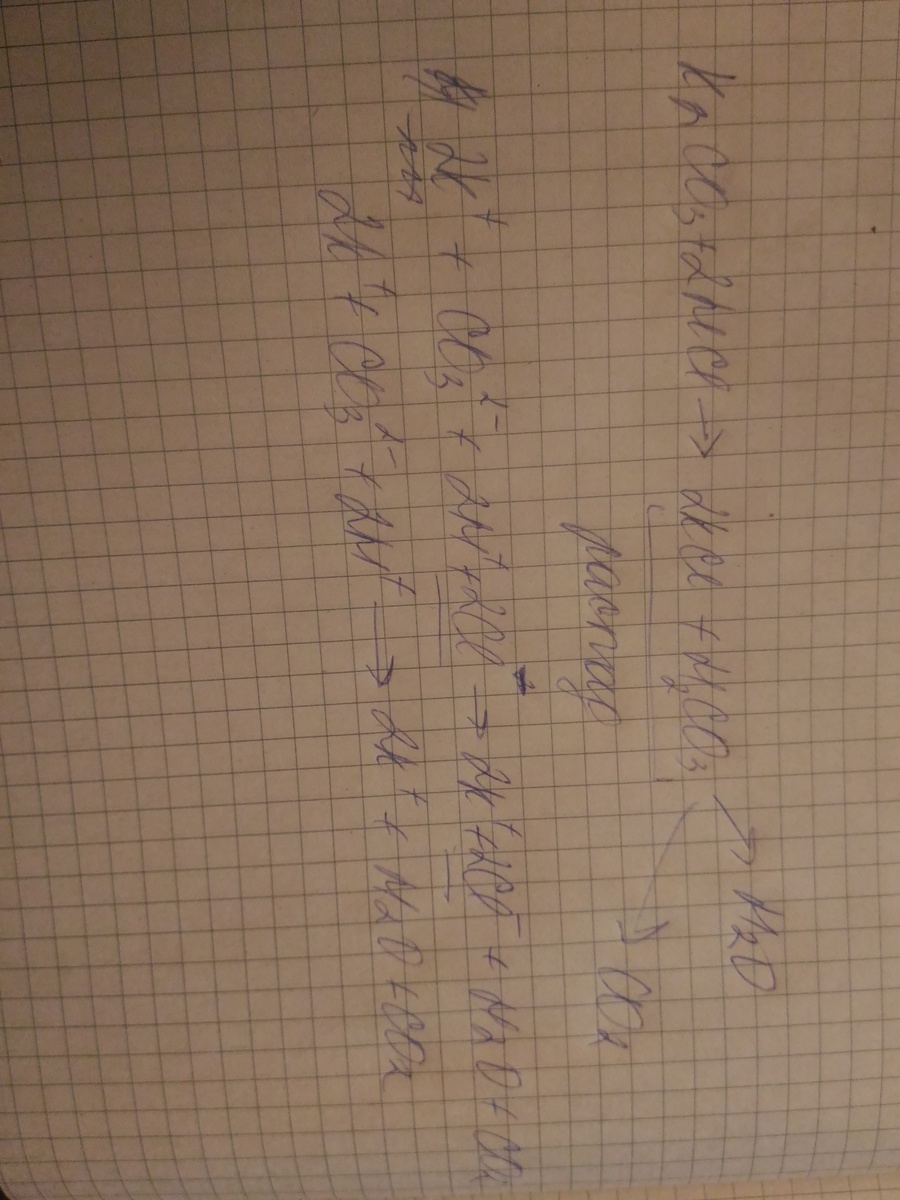 K₂CO₃ + 2HCl → 2KCl + H₂CO₃ → H₂O
→ CO₂
распад
2K⁺ + CO₃²⁻ + 2H⁺ + 2Cl⁻ → 2K⁺ + 2Cl⁻ + H₂O + CO₂
2K⁺ + CO₃²⁻ + 2H⁺ → 2K⁺ + H₂O + CO₂